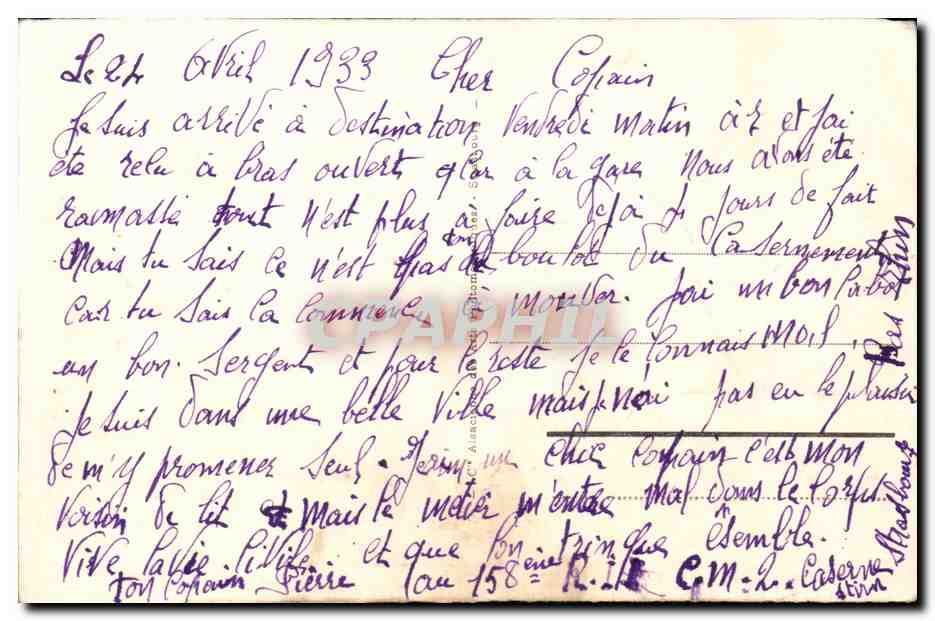 Le 24 Avril 1933 Cher Copain
Je suis arrivé à destination Vendredi matin à 2 et j'ai
été reçu à bras ouvert car à la gare nous avons été
ramassé tout n'est plus à faire déjà 4 jours de fait
Mais tu sais ce n'est pas boulot du Casernement
car tu sais la commence à monter. j'ai un bon Cabot
un bon Sergent et pour le reste je le connais mal.
je suis dans une belle ville mais je n'ai pas eu le plaisir
de m'y promener seul. J'ai un chic copain c'est mon
voisin de lit mais le métier m'entre mal dans le corps
Vive la vie Civile et que l'on trinque ensemble.
ton Copain Pierre (au 158ème R.I. C.M.2. Caserne
Stirn
Strasbourg
Bas Rhin
CPAPHIL